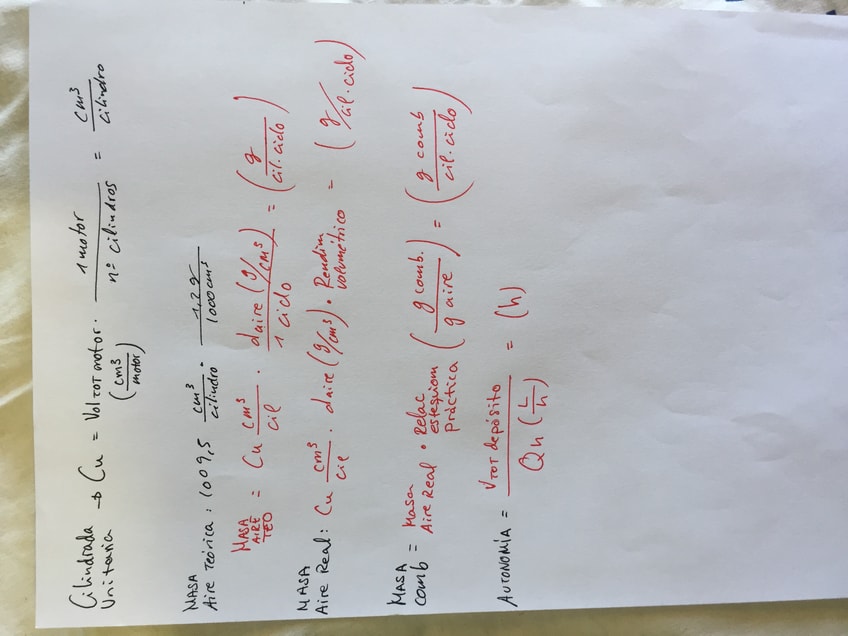 Cilindrada Unitaria → Cu = Vol TOT motor (cm³/motor) · 1 motor / nº cilindros = cm³/cilindro
MASA Aire Teórica : 1009,5 cm³/cilindro · 1,2 g/1000 cm³
MASA AIRE TEO = Cu cm³/cil · daire (g/cm³) / 1 ciclo = (g/cil·ciclo)
MASA Aire Real : Cu cm³/cil · daire (g/cm³) · Rendim volumétrico = (g/cil·ciclo)
MASA comb = Masa Aire Real · Relac estequiom Práctica (g comb./g aire) = (g comb/cil·ciclo)
AUTONOMÍA = VTOT depósito / Qh (L/h) = (h)